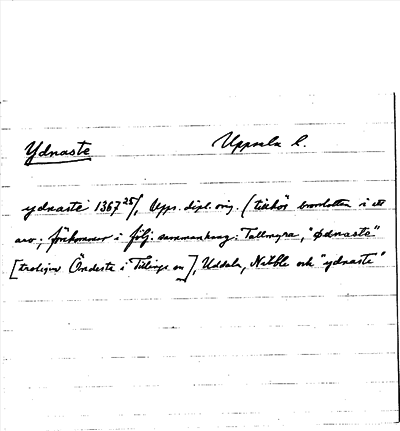 Ydnaste Uppsala l.
ydnaste 1367 25/ Upps. dipl. orig. (tillhör brorslotten i ett
arv; förekommer i följ. sammanhang: Tallmyra, "Ødnaste"
[troligen Önderste i Tillinge sn], Uddala, Nibble och "ydnaste"